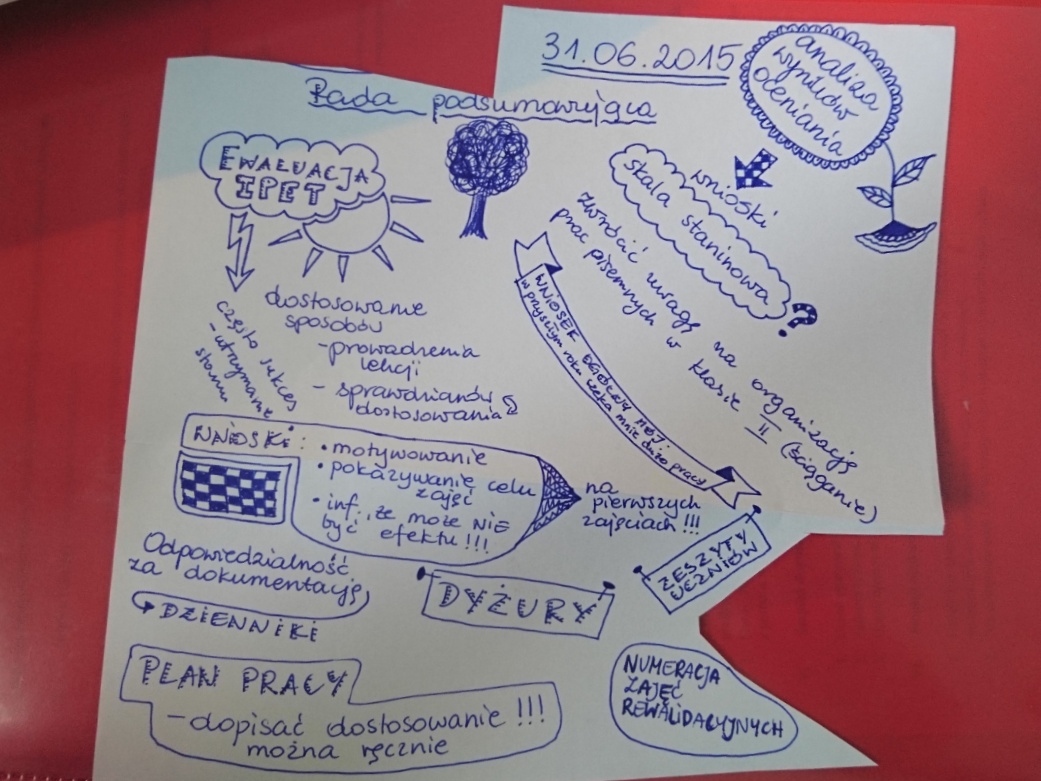 31.06.2015
Rada podsumowująca
analiza
wyników
oceniania
EWALUACJA
IPET
wnioski
skala staninowa
?
zwrócić uwagę na organizację
prac pisemnych w klasie II (ściąganie)
często sukces
- utrzymanie
stanu
dostosowanie
sposobów
- prowadzenia
lekcji
- sprawdzianów
dostosowania
WNIOSEK OGÓLNY MÓJ:
w przyszłym roku czeka mnie dużo pracy
WNIOSKI:
• motywowanie
• pokazywanie celu
zajęć
• inf., że może NIE
być efektu!!!
na
pierwszych
zajęciach!!!
Odpowiedzialność
za dokumentację
DZIENNIKI
DYŻURY
ZESZYTY
UCZNIÓW
PLAN PRACY
- dopisać dostosowanie!!!
można ręcznie
NUMERACJA
ZAJĘĆ
REWALIDACYJNYCH